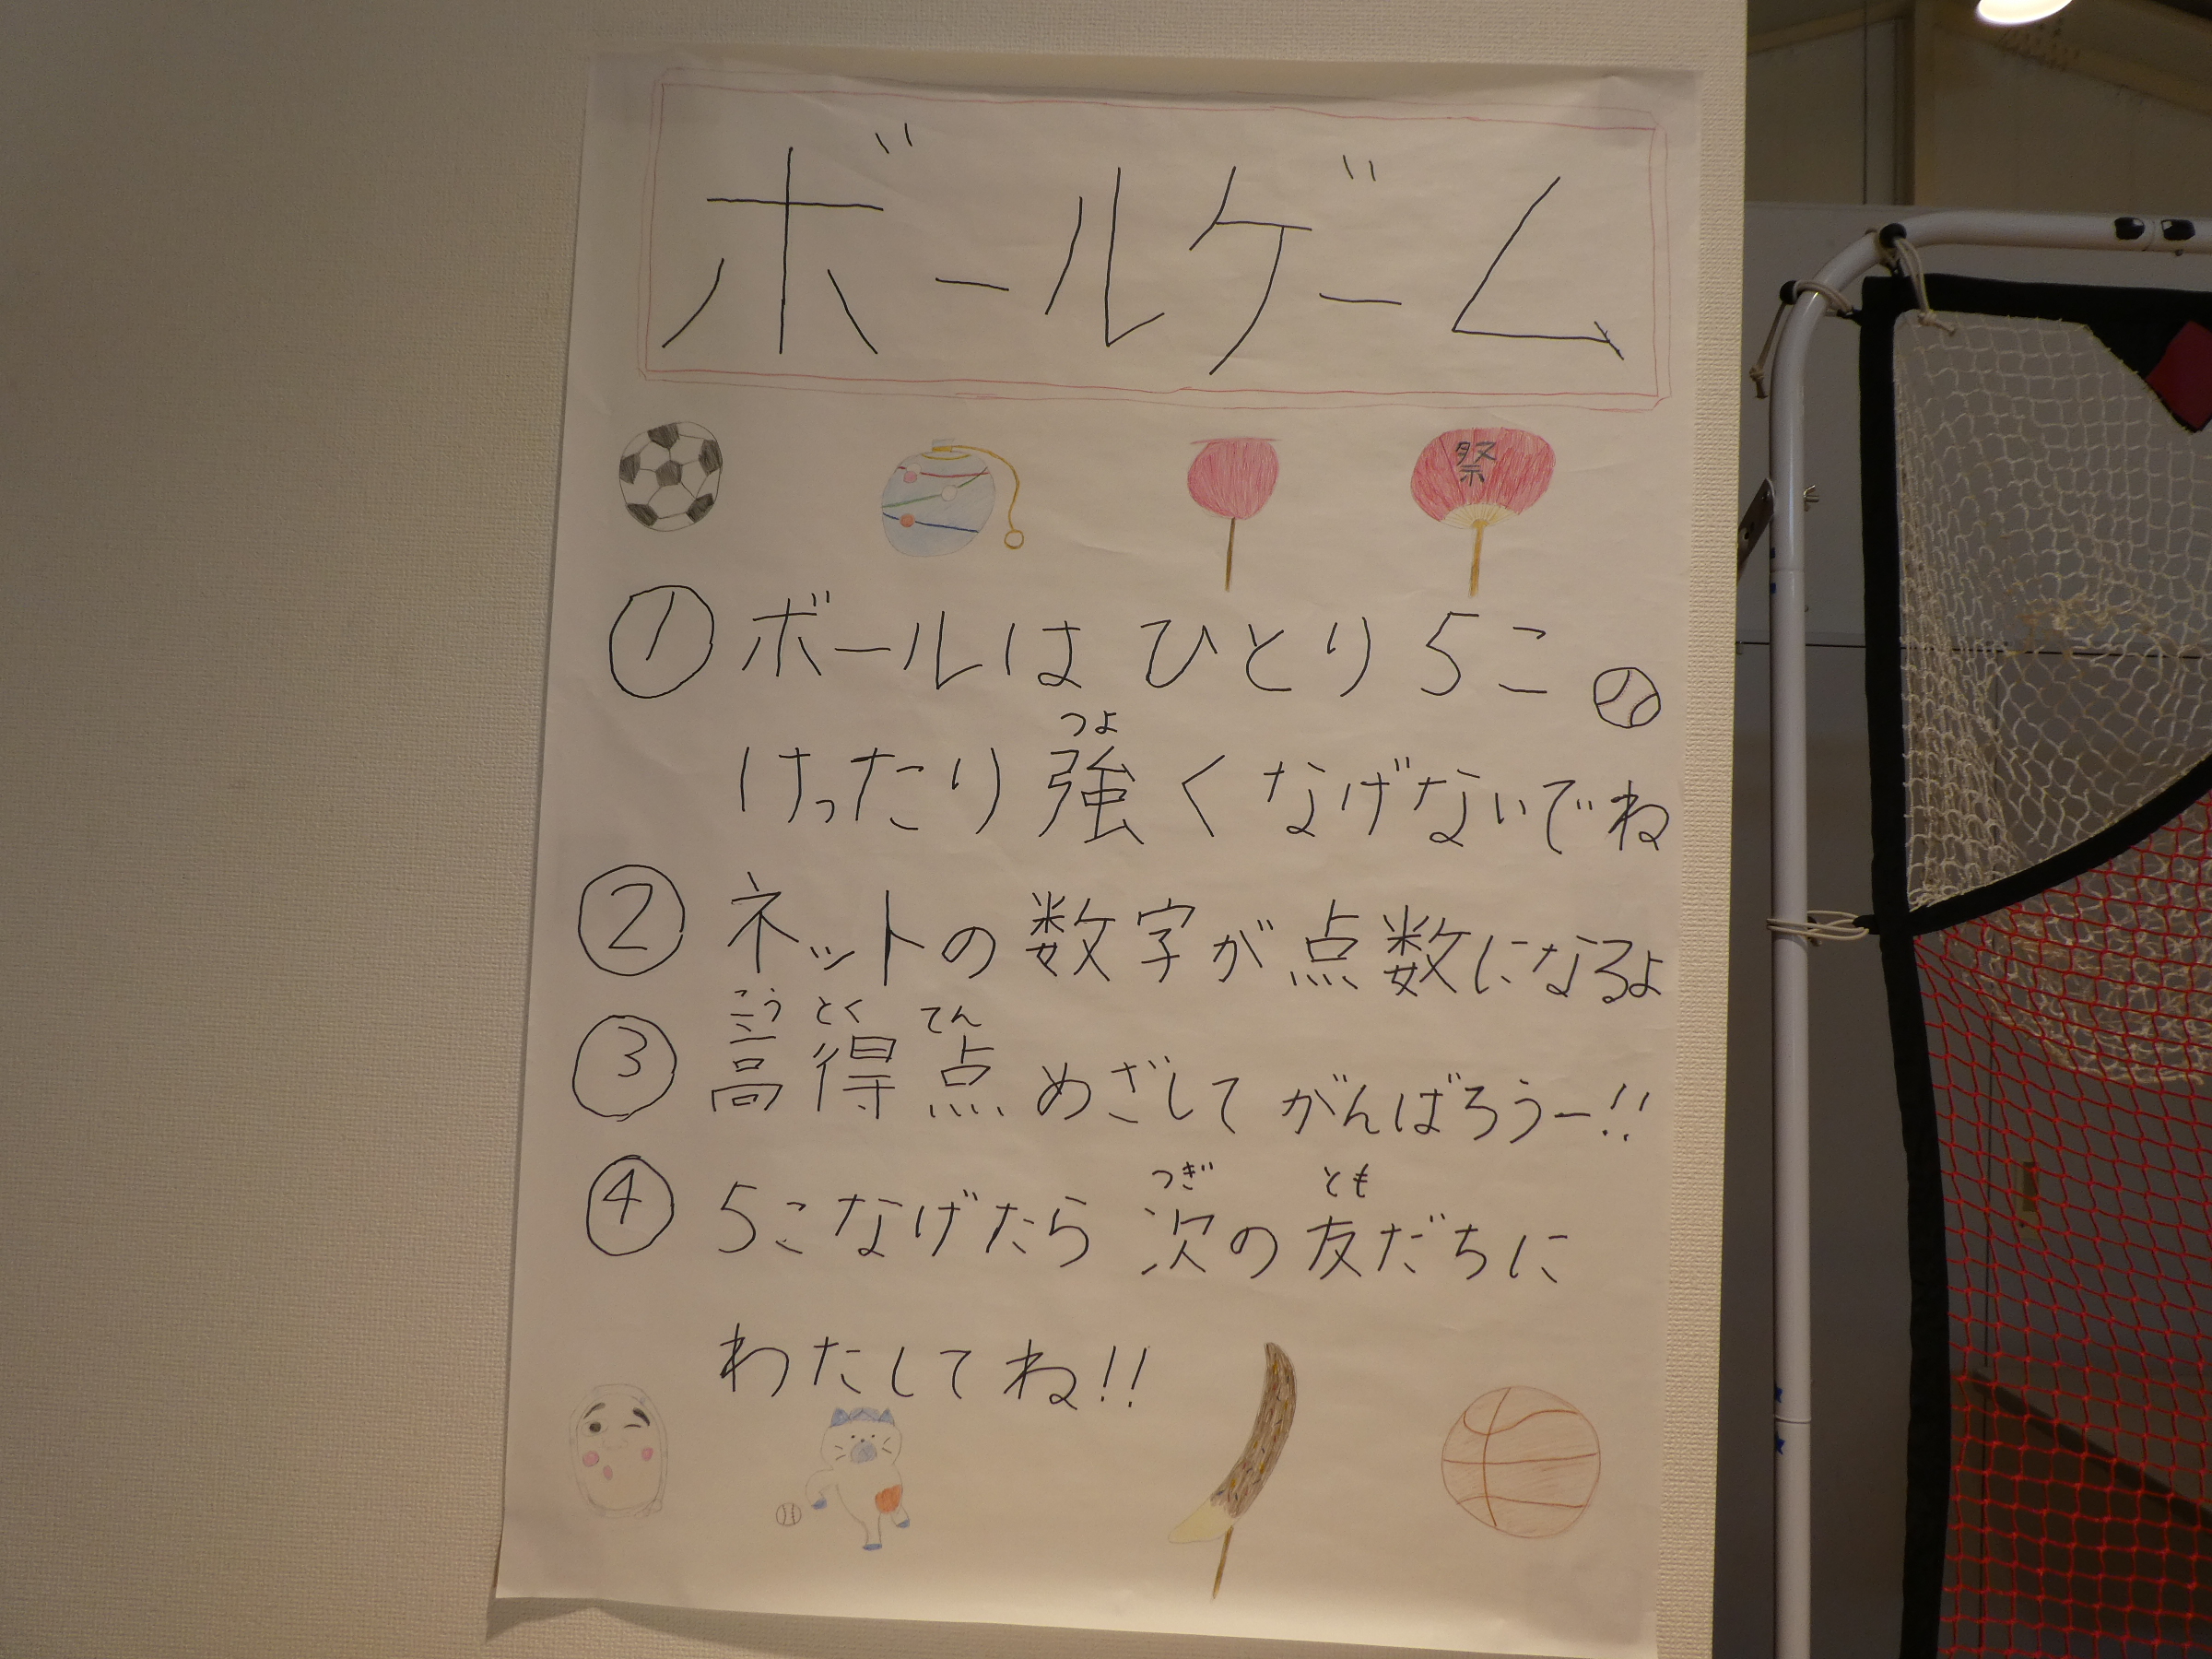 ボールゲーム
祭
① ボールは ひとり 5こ
つよ
けったり 強くなげないでね
② ネットの数字が点数になるよ
こう とく てん
③ 高得点めざして がんばろうー!!
つぎ とも
④ 5こなげたら 次の友だちに
わたしてね!!